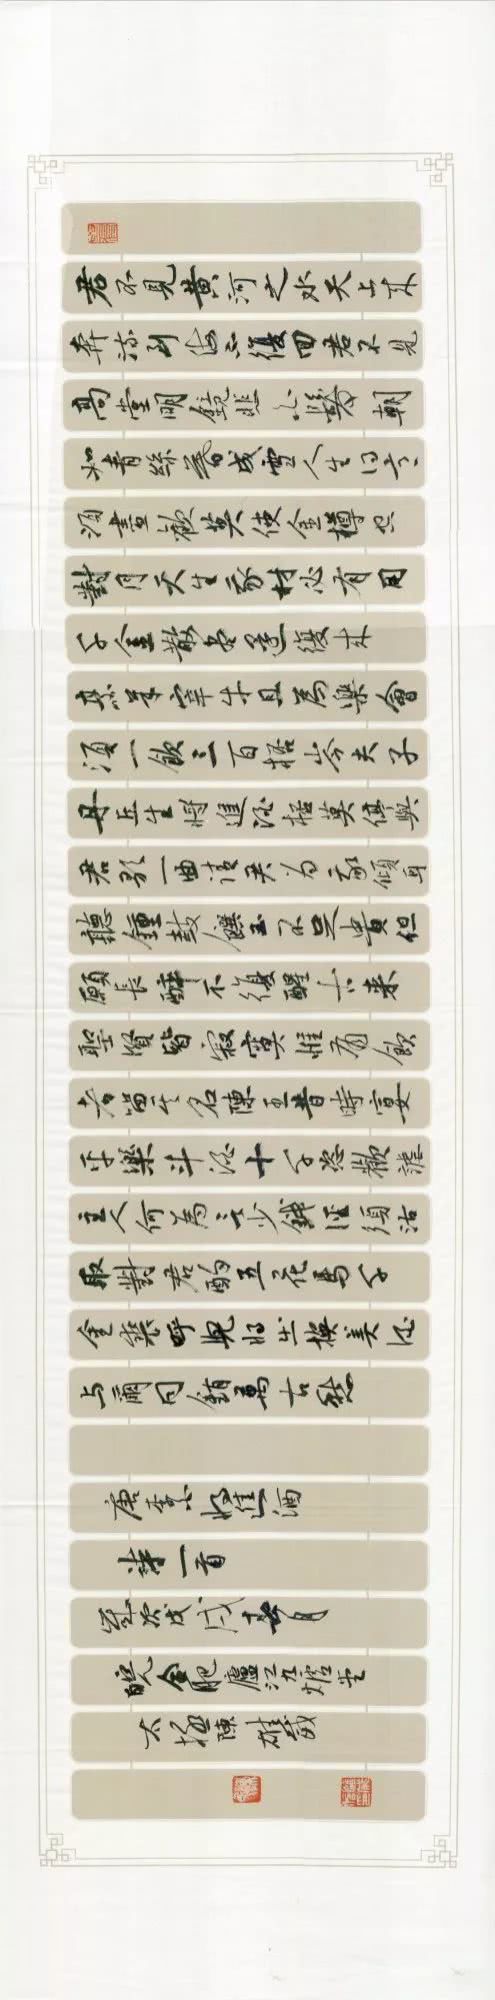 君不見黄河之水天上来
奔流到海不復回君不見
高堂明鏡悲白髮朝
如青絲暮成雪人生得意
須盡歡莫使金樽空
對月天生我材必有用
千金散盡還復来
烹羊宰牛且為樂會
須一飲三百杯岑夫子
丹丘生将進酒杯莫停與
君歌一曲請君为我傾耳
聽鐘鼓饌玉不足貴但
願長醉不復醒古来
聖賢皆寂寞惟有飲
者留其名陳王昔時宴
平樂斗酒十千恣歡謔
主人何為言少錢徑須沽
取對君酌五花馬千
金裘呼兒将出換美酒
与爾同銷萬古愁
唐李白将進酒
詩一首
歲次戊戌春月
皖合肥廬江
太極陳雄